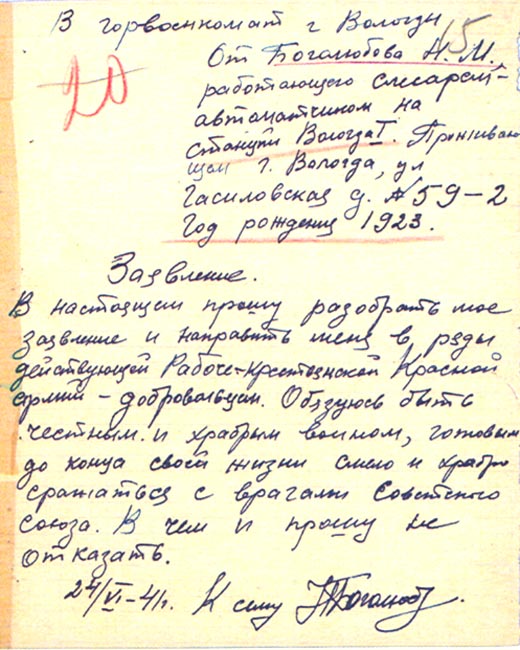 В горвоенкомат г Вологды
15
20
От Боголюбова Н. М.,
работающего слесарем-
автоматчиком на
станции Вологда I. Проживаю-
щем г. Вологда, ул
Гасиловская д. № 59-2
Год рождения 1923.
Заявление.
В настоящем прошу разобрать мое
заявление и направить меня в ряды
действующей Рабоче-Крестьянской Красной
армии - добровольцем. Обязуюсь быть
честным и храбрым воином, готовым
до конца своей жизни смело и храбро
сражаться с врагами Советского
союза. В чем и прошу не
отказать.
24/VI-41г. К сему Боголюбов.